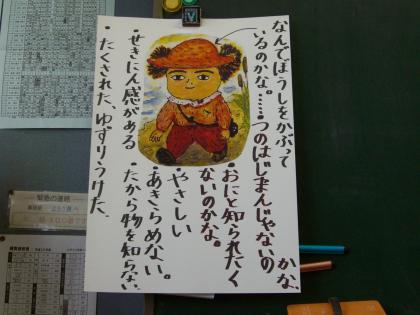 なんでぼうしをかぶって
いるのかな。……つのはじまんじゃないの
かな、
・おにと知られたく
ないのかな。
・やさしい
・あきらめない。
・たから物を知らない
・せきにん感がある
・たくされた、ゆずりうけた、
緊急の連絡